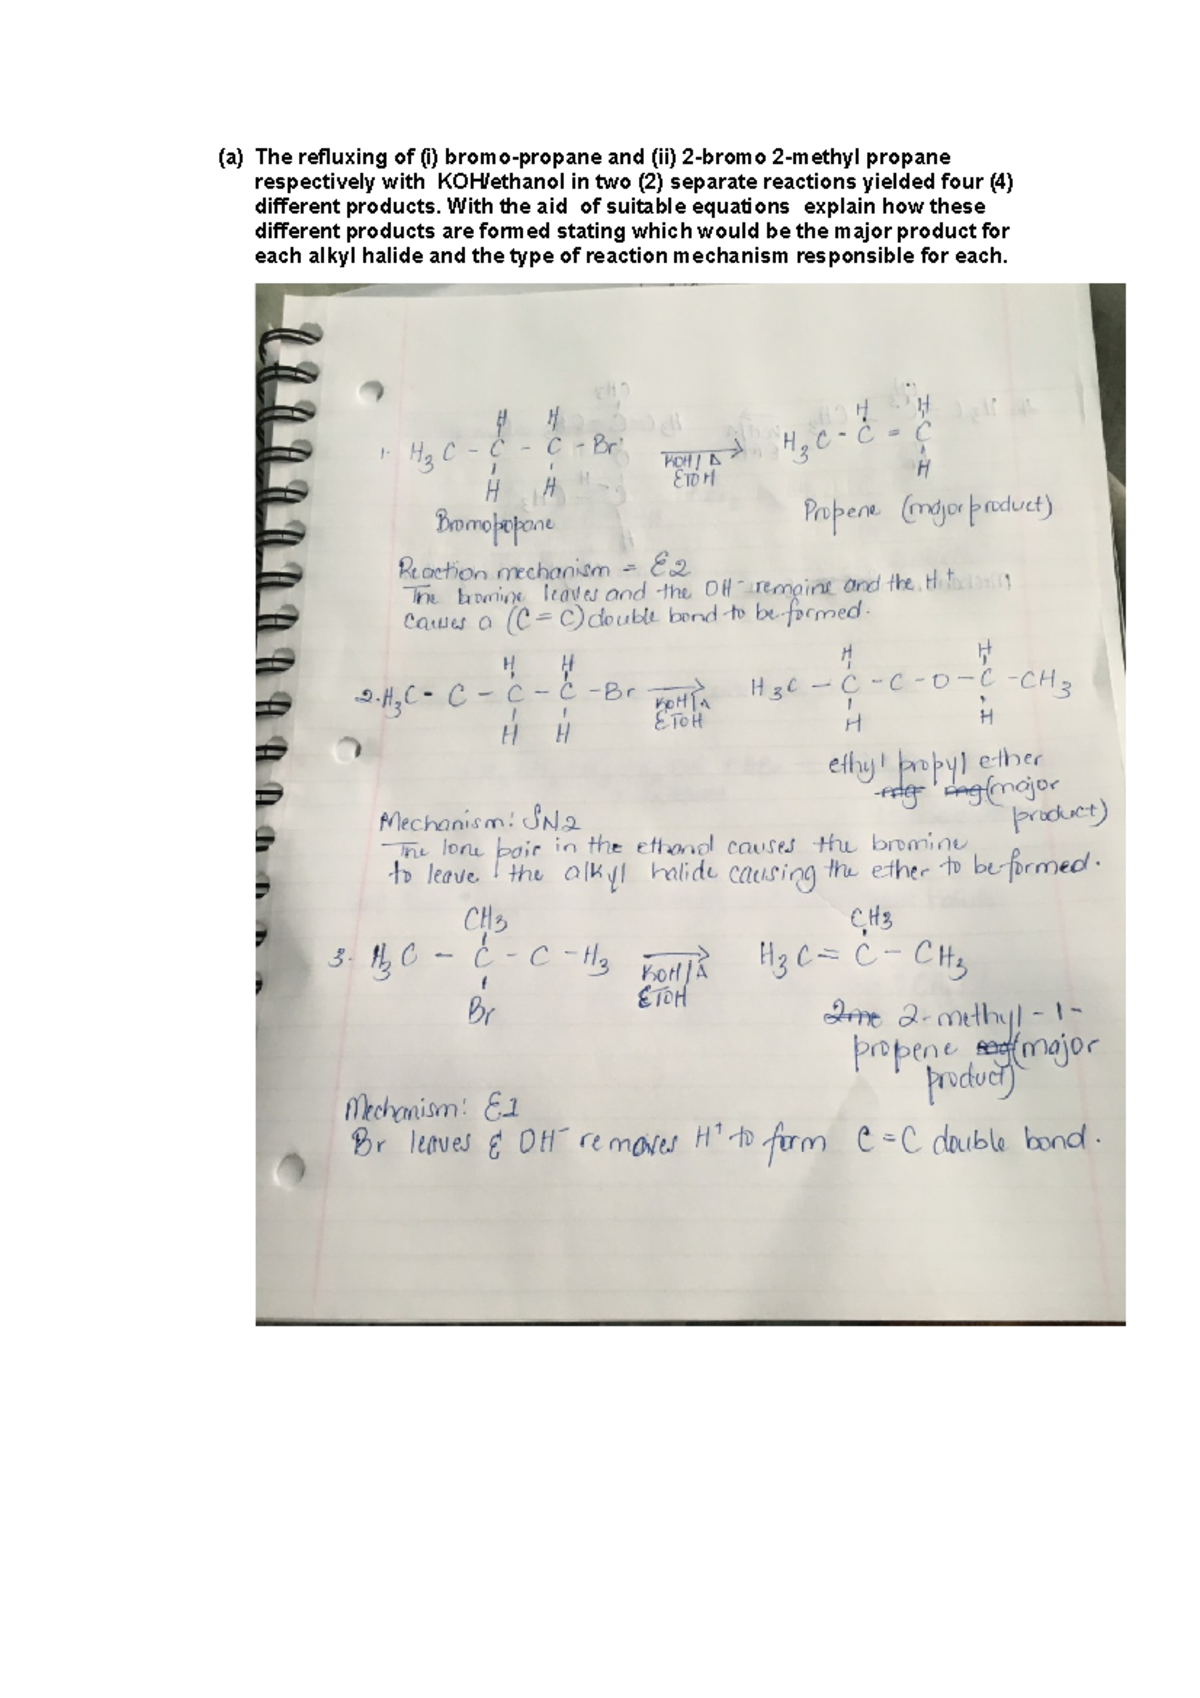 (a) The refluxing of (i) bromo-propane and (ii) 2-bromo 2-methyl propane
respectively with KOH/ethanol in two (2) separate reactions yielded four (4)
different products. With the aid of suitable equations explain how these
different products are formed stating which would be the major product for
each alkyl halide and the type of reaction mechanism responsible for each.
H H H H
1. H3C - C - C - Br KOH/Δ H3C - C = C
H H EtOH H
Bromopopane Propene (major product)
Reaction mechanism = E2
The bromine leaves and the OH- remains and the H+
causes a (C = C) double bond to be formed.
H H H H
2. H3C - C - C - C - Br KOH/Δ H3C - C - C - O - C - CH3
H H EtOH H H
ethyl propyl ether
(major
product)
Mechanism: SN2
The lone pair in the ethanol causes the bromine
to leave the alkyl halide causing the ether to be formed.
CH3 CH3
3. H3C - C - C - H3 KOH/Δ H3C = C - CH3
Br EtOH
2me 2-methyl-1-
propene (major
product)
Mechanism: E1
Br leaves & OH- removes H+ to form C = C double bond.